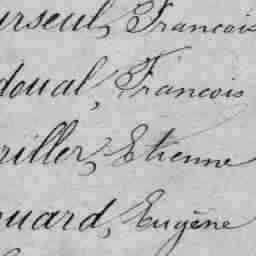 urseul, François
doual, François
riller, Etienne
ouard, Eugène